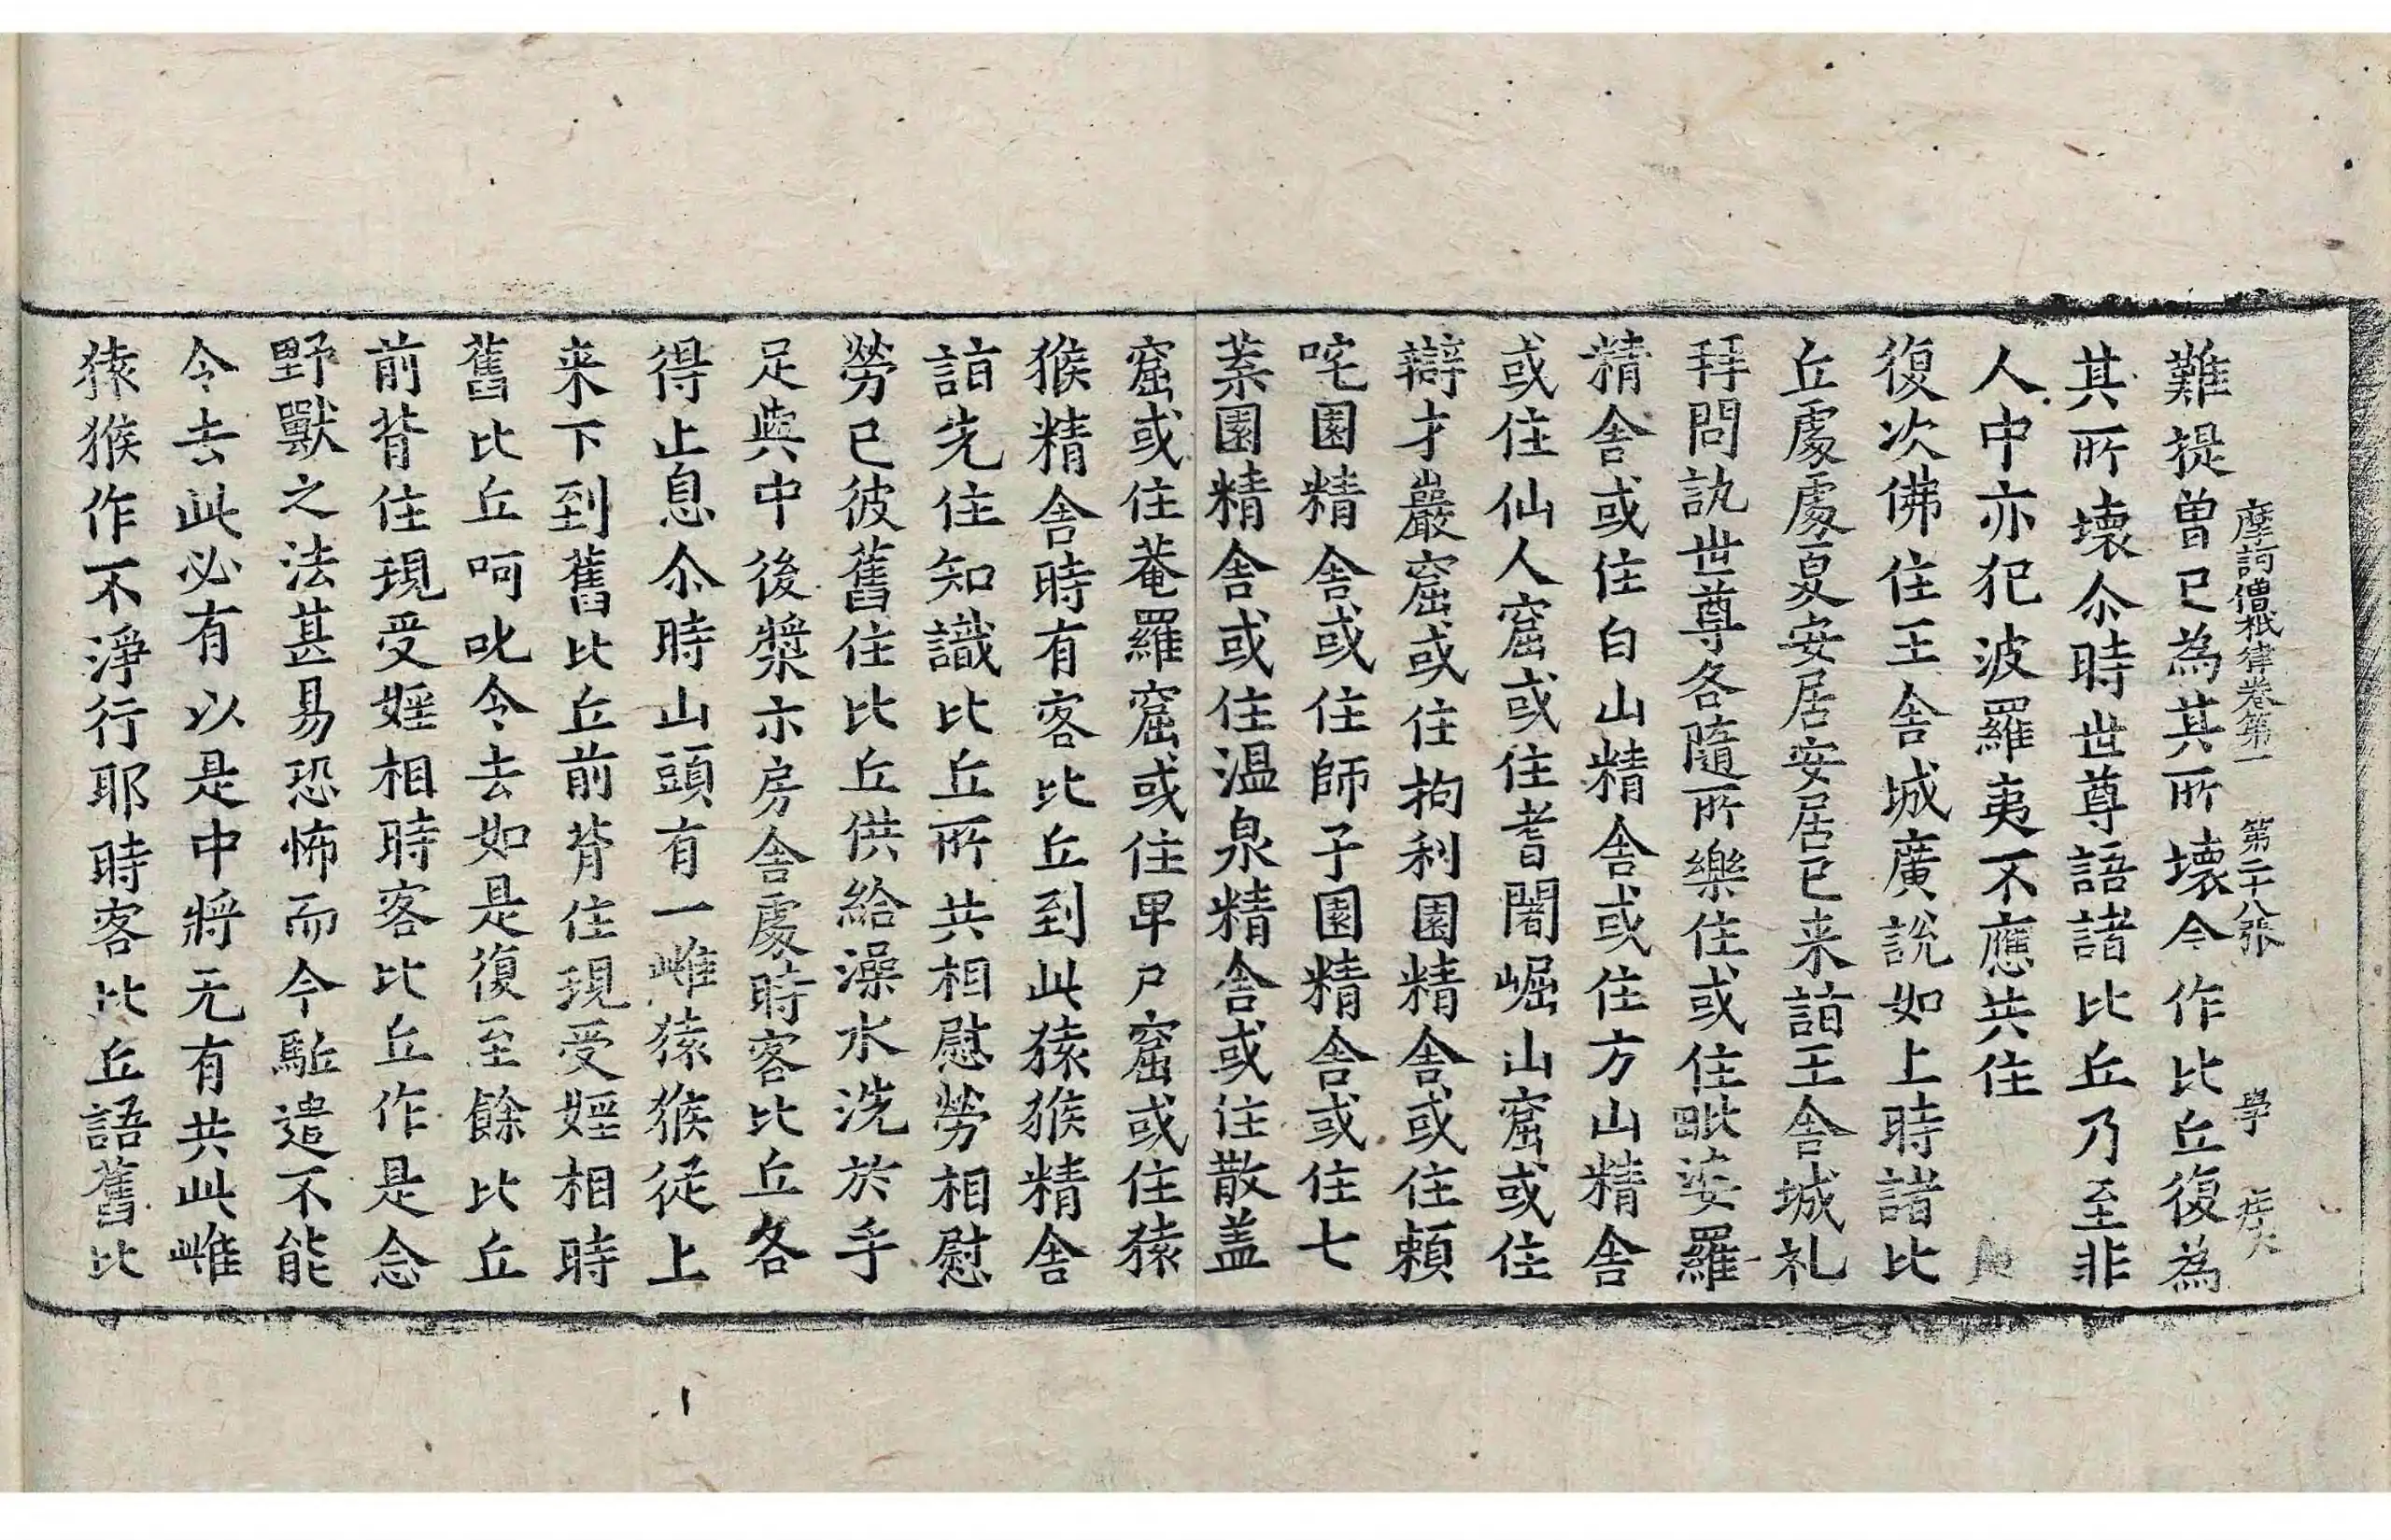 摩訶僧祇律卷第一 第二十八張 學
難提曽已為其所壊今作比丘復為
其所壊尒時世尊語諸比丘乃至非
人中亦犯波羅夷不應共住
復次佛住王舎城廣說如上時諸比
丘處處夏安居安居已来詣王舎城礼
拜問訊世尊各隨所樂住或住毗婆羅
精舎或住白山精舎或住方山精舎
或住仙人窟或住耆闍崛山窟或住
辯才巖窟或住拘利園精舎或住頼
咤園精舎或住師子園精舎或住七
葉園精舎或住温泉精舎或住散盖
窟或住菴羅窟或住卑尸窟或住猿
猴精舎時有客比丘到此猿猴精舎
詣先住知識比丘所共相慰勞相慰
勞已彼舊住比丘供給澡水洗於手
足與中後漿示房舎處時客比丘各
得止息尒時山頭有一雌猿猴從上
来下到舊比丘前背住現受婬相時
舊比丘呵叱令去如是復至餘比丘
前背住現受婬相時客比丘作是念
野獸之法甚易恐怖而今駈遣不能
令去此必有以是中將无有共此雌
猿猴作不淨行耶時客比丘語舊比